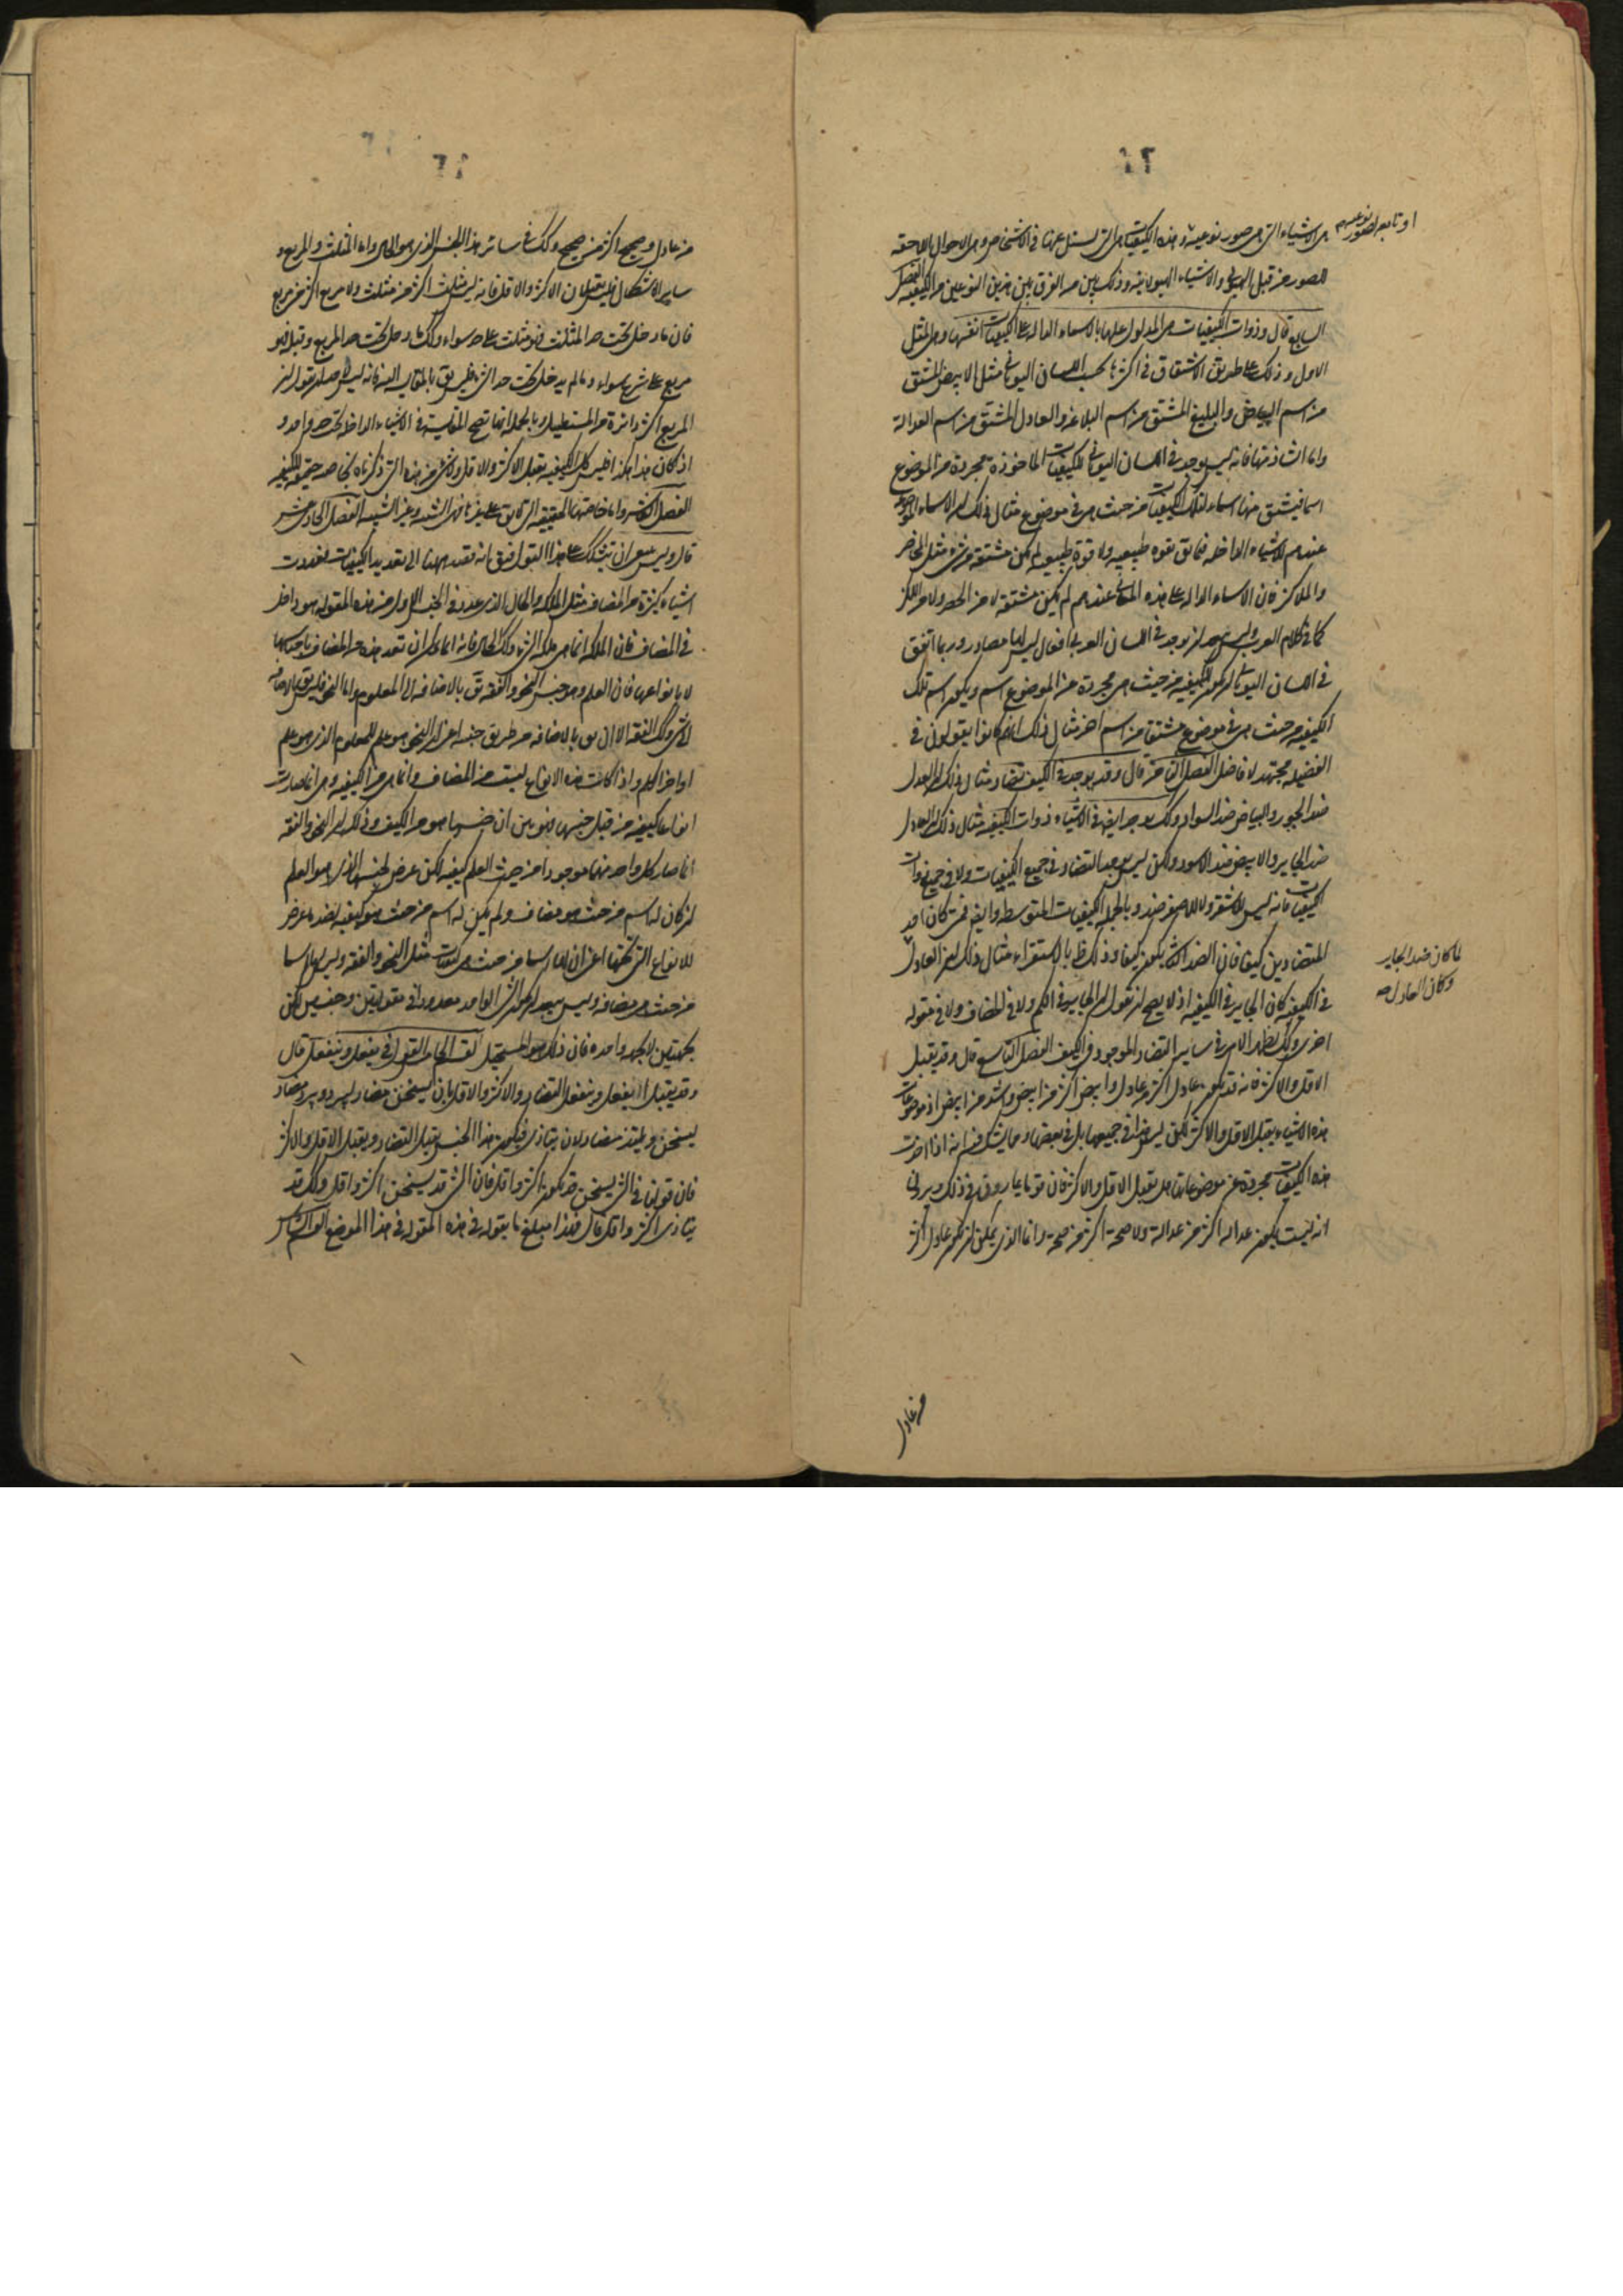 ٤٢
او تابعه لصور نوعيه
هى الاشياء التى هى صور نوعية و هذه الكيفيات هى التى يسئل عنها فى الاشخاص و هى الاحوال اللاحقة
للصور من قبل الهيولى والاشياء الهيولانيه وذلك بين من الفرق بين هذين النوعين من الكيفيه الفصل
السابع قال وذوات الكيفيات هى المدلول عليها بالاسماء الداله على الكيفيات انفسها وهى المثل
الاول وذلك على طريق الاشتقاق فى اكثرها بحسب اللسان اليونانى مثل الابيض المشتق
من اسم البياض والبليغ المشتق من اسم البلاغه والعادل المشتق من اسم العدالة
واما الشاذ منها فانه ليس يوجد فى اللسان اليونانى للكيفيات الماخوذة مجردة من الموضوع
اسما فيشتق منها اسماء لتلك الكيفيات من حيث هى فى موضوع مثال ذلك ان الاسماء الموضوعه
عندهم للاشياء الداخله فيما يق بقوه طبيعيه ولا قوة طبيعيه لم يكن مشتقة من شئ مثل المحاضر
والملاكز فان الاسماء الداله على هذه المعانى عندهم لم يكن مشتقة لا من الحضر ولا من اللكز
كما فى كلام العرب وليس يبعد ان يوجد فى اللسان العربى افعال ليس لها مصادر وربما اتفق
فى اللسان اليونانى ان يكون للكيفيه من حيث هى مجردة من الموضوع اسم ويكون اسم تلك
الكيفيه من حيث هى فى موضوع مشتق من اسم اخر مثال ذلك انهم كانوا يقولون فى
الفضيله مجتهد لا فاضل الفصل الثامن قال وقد يوجد فى الكيف تضاد مثال ذلك ان العدل
ضد الجور والبياض ضد السواد وكك يوجد ايضا فى الاشياء ذوات الكيفيه مثال ذلك ان العادل
ضد الجاير والابيض ضد الاسود ولكن ليس يوجد التضاد فى جميع الكيفيات ولا فى جميع ذوات
الكيفيات فانه ليس للاشقر ولا للاصفر ضد وبالجملة الكيفيات المتوسطه وايضا فمتى كان احد
المتضادين كيفا فان الضد الاخر يكون كيفا وذلك ظ بالاستقراء مثال ذلك ان العادل
لما كان ضد الجاير
وكان العادل صه
فى الكيفيه كان الجاير فى الكيفيه اذ لا يصح ان نقول ان الجاير فى الكم ولا فى المضاف ولا فى مقوله
اخرى وكك يظهر الامر فى ساير التضاد الموجود فى الكيف الفصل التاسع قال وقد يقبل
الاقل والاكثر فانه قد يكون عادل اكثر من عادل وابيض اكثر من ابيض واشد من ابيض اذ موضوعات
هذه الاشياء يقبل الاقل والاكثر لكن ليس هذا فى جميعها بل فى بعضها ومما يشك فيه انه اذا اخذت
هذه الكيفيات مجردة عن موضوعاتها هل يقبل الاقل والاكثر فان قوما يمارون فى ذلك ويرون
انه ليست يكون عدالة اكثر من عدالة ولا صحة اكثر من صحة وانما الذى يمكن ان يكون عادل اكثر
من عادل
من عادل وصحيح اكثر من صحيح وكك فى سائر هذا الجنس الذى هو الحال واما المثلث والمربع و
ساير الاشكال فليس يقبلان الاكثر والاقل فانه ليس مثلث اكثر من مثلث ولا مربع اكثر من مربع
فان ما دخل تحت حد المثلث فهو مثلث على حد سواء وكك ما دخل تحت حد المربع وقبله فهو
مربع على سواء وما لم يدخل تحت حد الشئ فليس يق بالمقايسة اليه فانه ليس لاحد ان يقول ان
المربع اكثر دائرة من المستطيل وبالجملة انما تصح المقايسة فى الاشياء الداخله تحت حد واحد و
اذ كان هذا هكذا فليس كل الكيفيه يقبل الاكثر والاقل ولا شئ من هذه التى ذكرناه بخاصه حقيقيه للكيفيه
الفصل العاشر واما خاصتها الحقيقيه التى لا يق على غيرها فهى الشبيه وغير الشبيه الفصل الحادى عشر
قال وليس ينبغى ان يتشكك على هذا القول فيق انه قصد ههنا الى تعديد الكيفيات فعددت
اشياء كثيرة من المضاف مثل الملكه والحال الذى عدد فى الجنس الاول من هذه المقوله هو داخل
فى المضاف فان الملكه انما هى ملكه لشئ وكك الحال فانه انما يمكن ان تعد هذه من المضاف باجناسها
لا بانواعها فان العلم وهو جنس النحو والفقه يق بالاضافه الى المعلوم واما النحو فليس يق بالاضافه
الى شئ وكك الفقه الا ان يق بالاضافه من طريق جنسه اعنى ان النحو هو علم للمعلوم الذى هو علم
اواخر الكلم واذا كانت هذه الانواع ليست من المضاف وانما هى من الكيفيه وهى انما صارت
انواعا كيفيه من قبل جنسها فهو بين ان جنسها هو من الكيف وذلك ان النحو والفقه
انما صار كل واحد منهما موجودا من حيث العلم كيفيه لكن عرض لجنسها الذى هو العلم
ان كان له اسم من حيث هو مضاف ولم يكن له اسم من حيث هو كيفيه بضد ما عرض
للانواع التى تحتها اعنى ان لها اسما من حيث هى كيفيات مثل النحو والفقه وليس لها اسما
من حيث هى مضافه وليس يبعد ان يكون الشئ الواحد معدودا فى مقولتين وجنسين لكن
بجهتين لا بجهه واحده فان ذلك هو المستحيل القسم الخامس القول فى يفعل وينفعل قال
وقد يقبل يفعل وينفعل التضاد والاكثر والاقل فان يسخن مضاد ليبرد ويبرد مضاد
ليسخن ويلتذ مضاد لان يتاذى فيكون هذا الجنس يقبل التضاد ويقبل الاقل والاكثر
فان قولنا فى الشئ يسخن قد يكون باكثر واقل فان الشئ قد يسخن اكثر واقل وكك قد
يتاذى اكثر واقل قال فهذا مبلغ ما يقوله فى هذه المقوله فى هذا الموضع